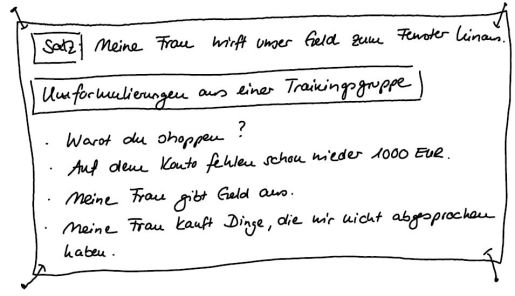 Satz: Meine Frau wirft unser Geld zum Fenster hinaus.
Umformulierungen aus einer Trainingsgruppe
· Warst du shoppen?
· Auf dem Konto fehlen schon wieder 1000 EUR.
· Meine Frau gibt Geld aus.
· Meine Frau kauft Dinge, die wir nicht abgesprochen
haben.